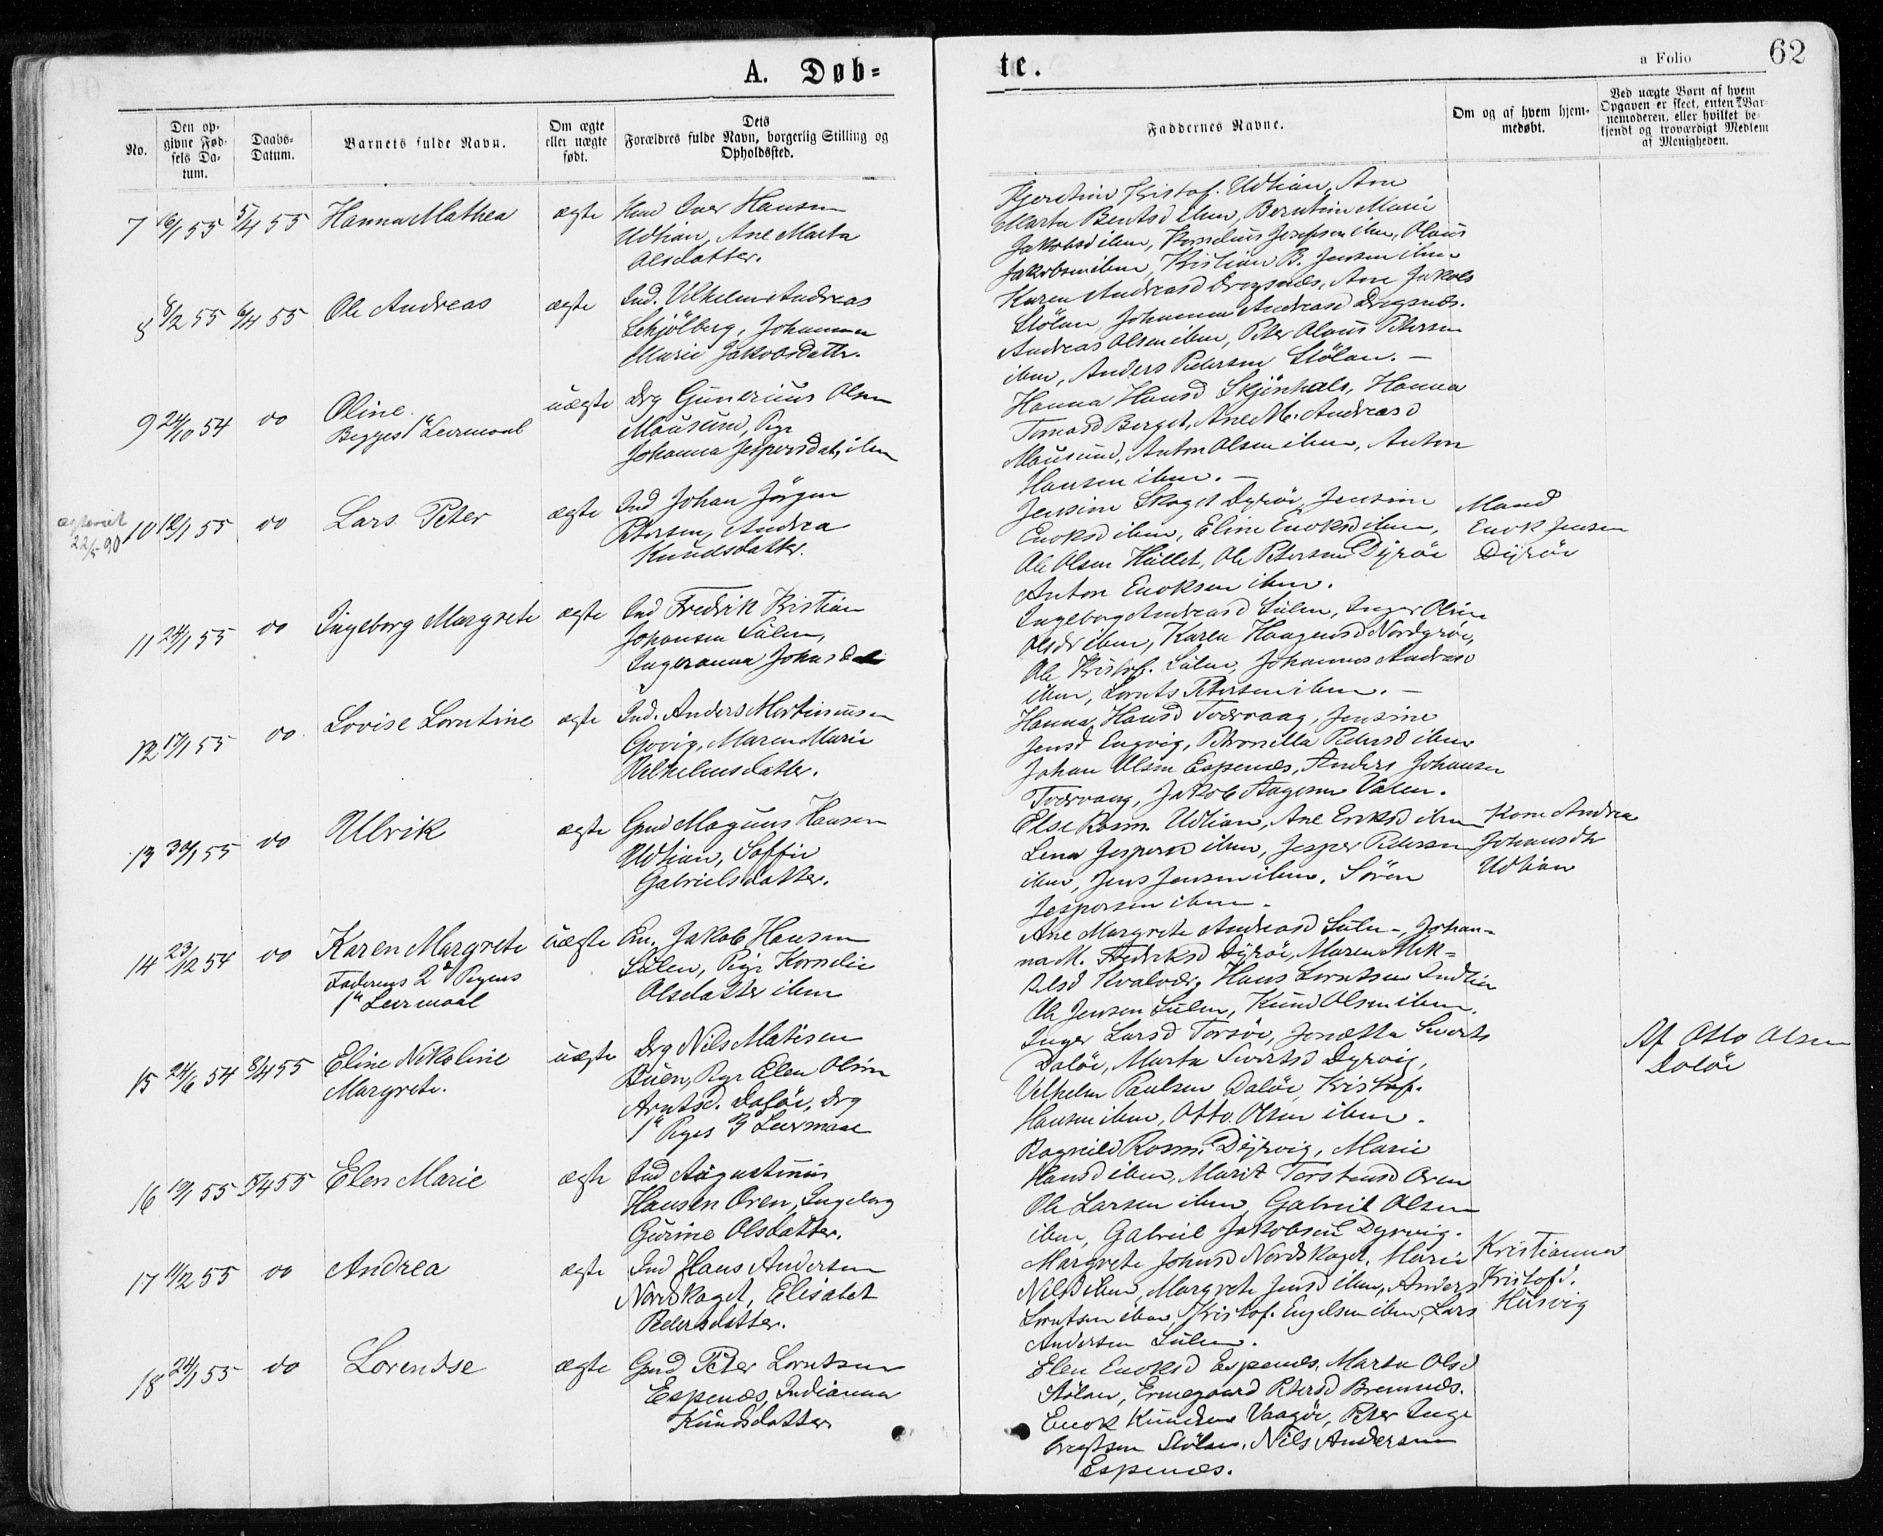 A. Døb=
te.
a Folio
62
No.
Den op-
givne Fød-
sels Da-
tum.
Daabs-
Datum.
Barnets fulde Navn.
Om ægte
eller uægte
født.
Dets
Forældres fulde Navn, borgerlig Stilling og
Opholdssted.
Faddernes Navne.
Om og af hvem hjem-
medøbt.
Ved uægte Børn af hvem
Opgaven er skeet, enten Bar-
nemoderen, eller hvilket be-
kjendt og troværdigt Medlem
af Menigheden.
7 16/1 55 5/4 55 Hanna Mathea ægte Iver Hansen
Udtian, Ane Marta
Olsdatter.
Kristof. Udtian, Ane
Marta Bentsd ibm, Berntine Marie
Jakobsd ibm, Kornelius Josefsen ibm, Olaus
Jakobsen ibm, Kristian B. Jensen ibm
8 8/2 55 6/4 55 Ole Andreas ægte Ind. Vilhelm Andreas
Johanna
Marie Jakobsdatter.
Karen Andreasd Dragsnæs, Ane Jakobs
Stölan, Johanna Andreasd Dragsnæs.
Andreas Olsen ibm, Peter Olaus Petersen
ibm, Anders Petersen Stölan. —
9 24/10 54 do Oline. uægte Drg Gunerius Olsen
Begges 1e Leiermaal
Mausund, Pige
Johanna Jespersdat, ibm
Hanna Hansd Skjönhals, Hanna
Berget, Ane M. Andreasd
Mausund, Anton Olsen ibm, Anton
Hansen ibm. —
ægteviet
22/5 90
10 12/1 55 do Lars Peter ægte Ind Johan Jörgen
Petersen, Andrea
Knudsdatter.
Jensine Skaget Dyröe, Jensine
Enoksd ibm, Eline Enoksd ibm,
Ole Olsen Hallet, Ole Petersen Dyröe
Anton Enoksen ibm.
Mand
Enok Jensen
Dyröe
11 24/1 55 do Ingeborg Margrete ægte Ind Fredrik Kristian
Johansen Sulen,
Ingeranna Johnsd
Ingeborg Andreasd Sulen, Inger Oline
Olsdr ibm, Karen Haagensd Nordyröe,
Ole Kristof. Sulen, Johannes Andreas
ibm, Lornts Petersen ibm. —
12 17/1 55 do Lovise Lorntine ægte Ind. Anders Martinusen
Govig, Maren Marie
Vilhelmsdatter.
Hanna Hansd Tvervaag, Jensine
Jensd Engvig, Petronella Pedersd ibm
Johan Olsen Espenæs, Anders Johansen
Tvervaag, Jakob Aagesen Valen.
13 30/1 55 do Ulrik ægte Gmd Magnus Hansen
Udtian, Soffie
Gabrielsdatter.
Else Rasm. Udtian, Ane Eriksd ibm
Lena Jespersd ibm, Jesper Pedersen
ibm, Jens Jensen ibm. Sören
Jespersen ibm.
Kone Andrea
Johansdtr
Udtian
14 23/12 54 do Karen Margrete uægte Em. Jakob Hansen
Faderens 2d Pigens
1e Leiermaal
Sulen, Pige Kornelie
Olsdatter ibm
Ane Margrete Andreasd Sulen, Johan-
na M. Fredriksd Dyröe, Maren Mik-
kelsd Kvalvær, Hans Lorntsen Indtian
Ole Jensen Sulen, Knud Olsen ibm.
15 24/6 54 8/4 55 Eline Nikoline
Margrete.
uægte Drg Nils Matisen
Buen, Pige Elen Oline
Arntsd. Dalöe, Drg
1e Piges 3 Leiermaal
Inger Larsd Torsöe, Josætta Siverts
Dalöe, Marta Sivertsd Dyrvig,
Vilhelm Paulsen Dalöe, Kristof.
Hansen ibm, Otto Olsen ibm.
Af Otto Olsen
Dolöe
16 19/1 55 15/4 55 Elen Marie ægte Ind Augustinus
Hansen Oren, Ingeborg
Gurine Olsdatter.
Ragnild Rasm. Dyrvig, Marie
Hansd ibm, Marit Torstensd Oren
Ole Larsen ibm, Gabriel Olsen
ibm, Gabriel Jakobsen Dyrvig.
17 11/2 55 do Andrea ægte Ind Hans Andersen
Nordskaget, Elisabet
Pedersdatter.
Margrete Johnsd Nordskaget, Marie
Nilsd ibm, Margrete Jensd ibm, Anders
Lorntsen ibm, Kristof. Engelsen ibm, Lars
Andersen Sulen.
Kristianna
Kristofd.
Husvig
18 24/1 55 do Lorendse ægte Gmd Peter Lorntsen
Espenæs, Indianna
Knudsdatter.
Elen Enoksd Espenæs, Marta Olsd
Stölan, Ermegaard Petersd Bremnæs.
Enok Knudsen Vaagöe, Peter Inge
bregtsen Stölan. Nils Andersen
Espenæs.